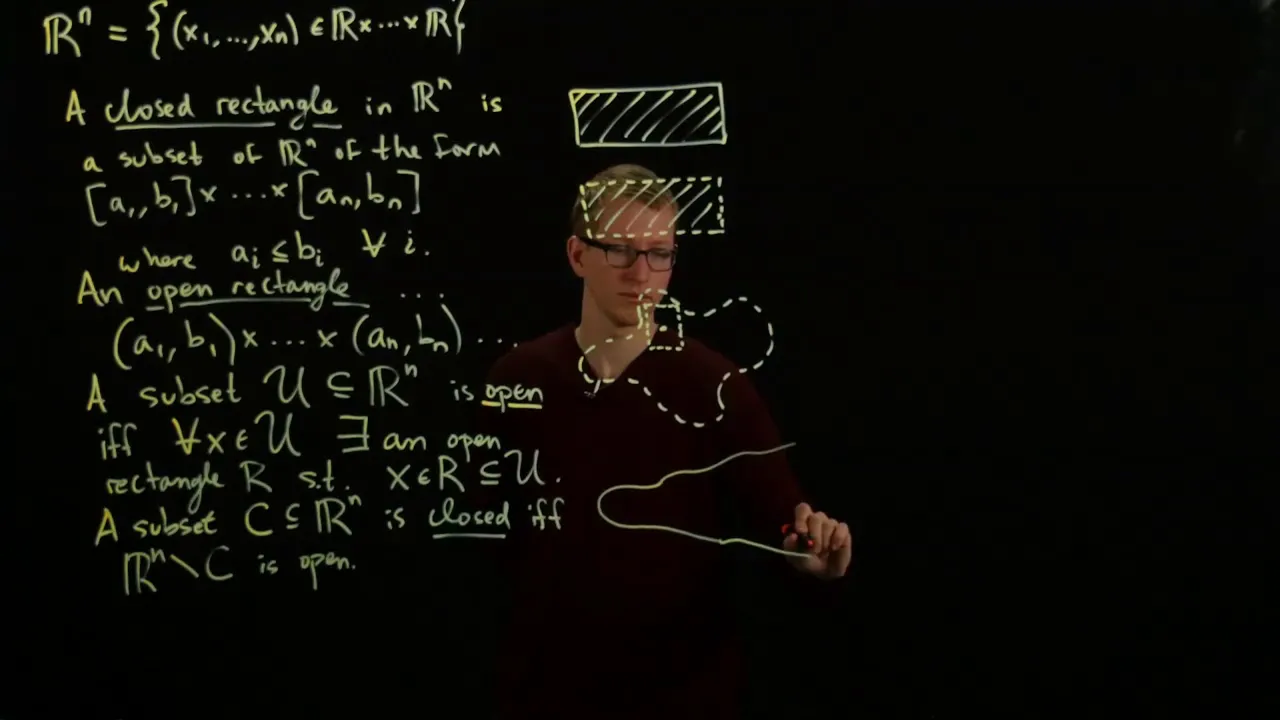 ℝⁿ = {(x₁,...,xₙ) ∈ ℝ×⋯×ℝ}
A closed rectangle in ℝⁿ is
a subset of ℝⁿ of the form
[a₁,b₁]×⋯×[aₙ,bₙ]
where aᵢ ≤ bᵢ ∀ i.
An open rectangle ...
(a₁,b₁)×⋯×(aₙ,bₙ) ...
A subset U ⊆ ℝⁿ is open
iff ∀x∈U ∃ an open
rectangle R s.t. x∈R⊆U.
A subset C⊆ℝⁿ is closed iff
ℝⁿ∖C is open.